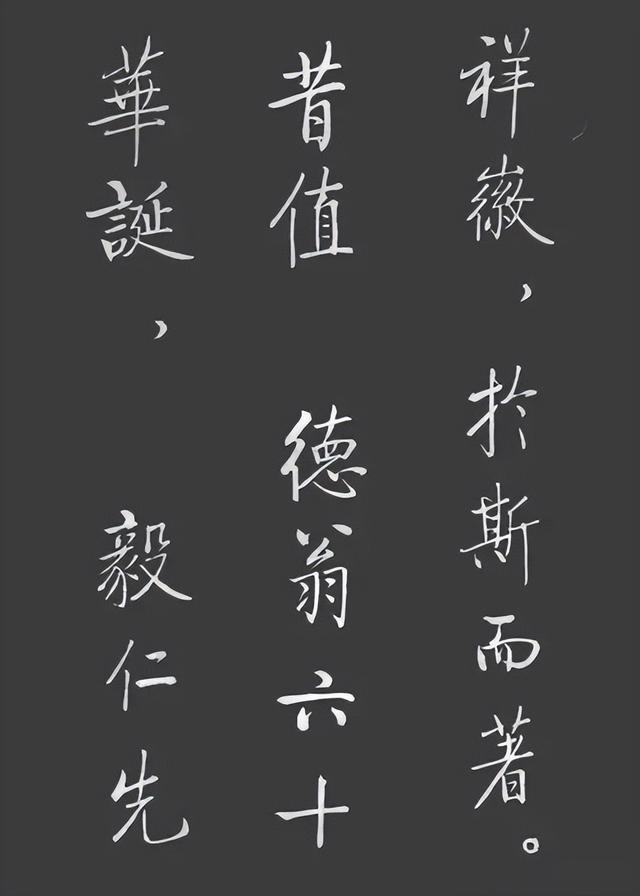 祥徽，於斯而著。
昔值 德翁六十
華誕， 毅仁先